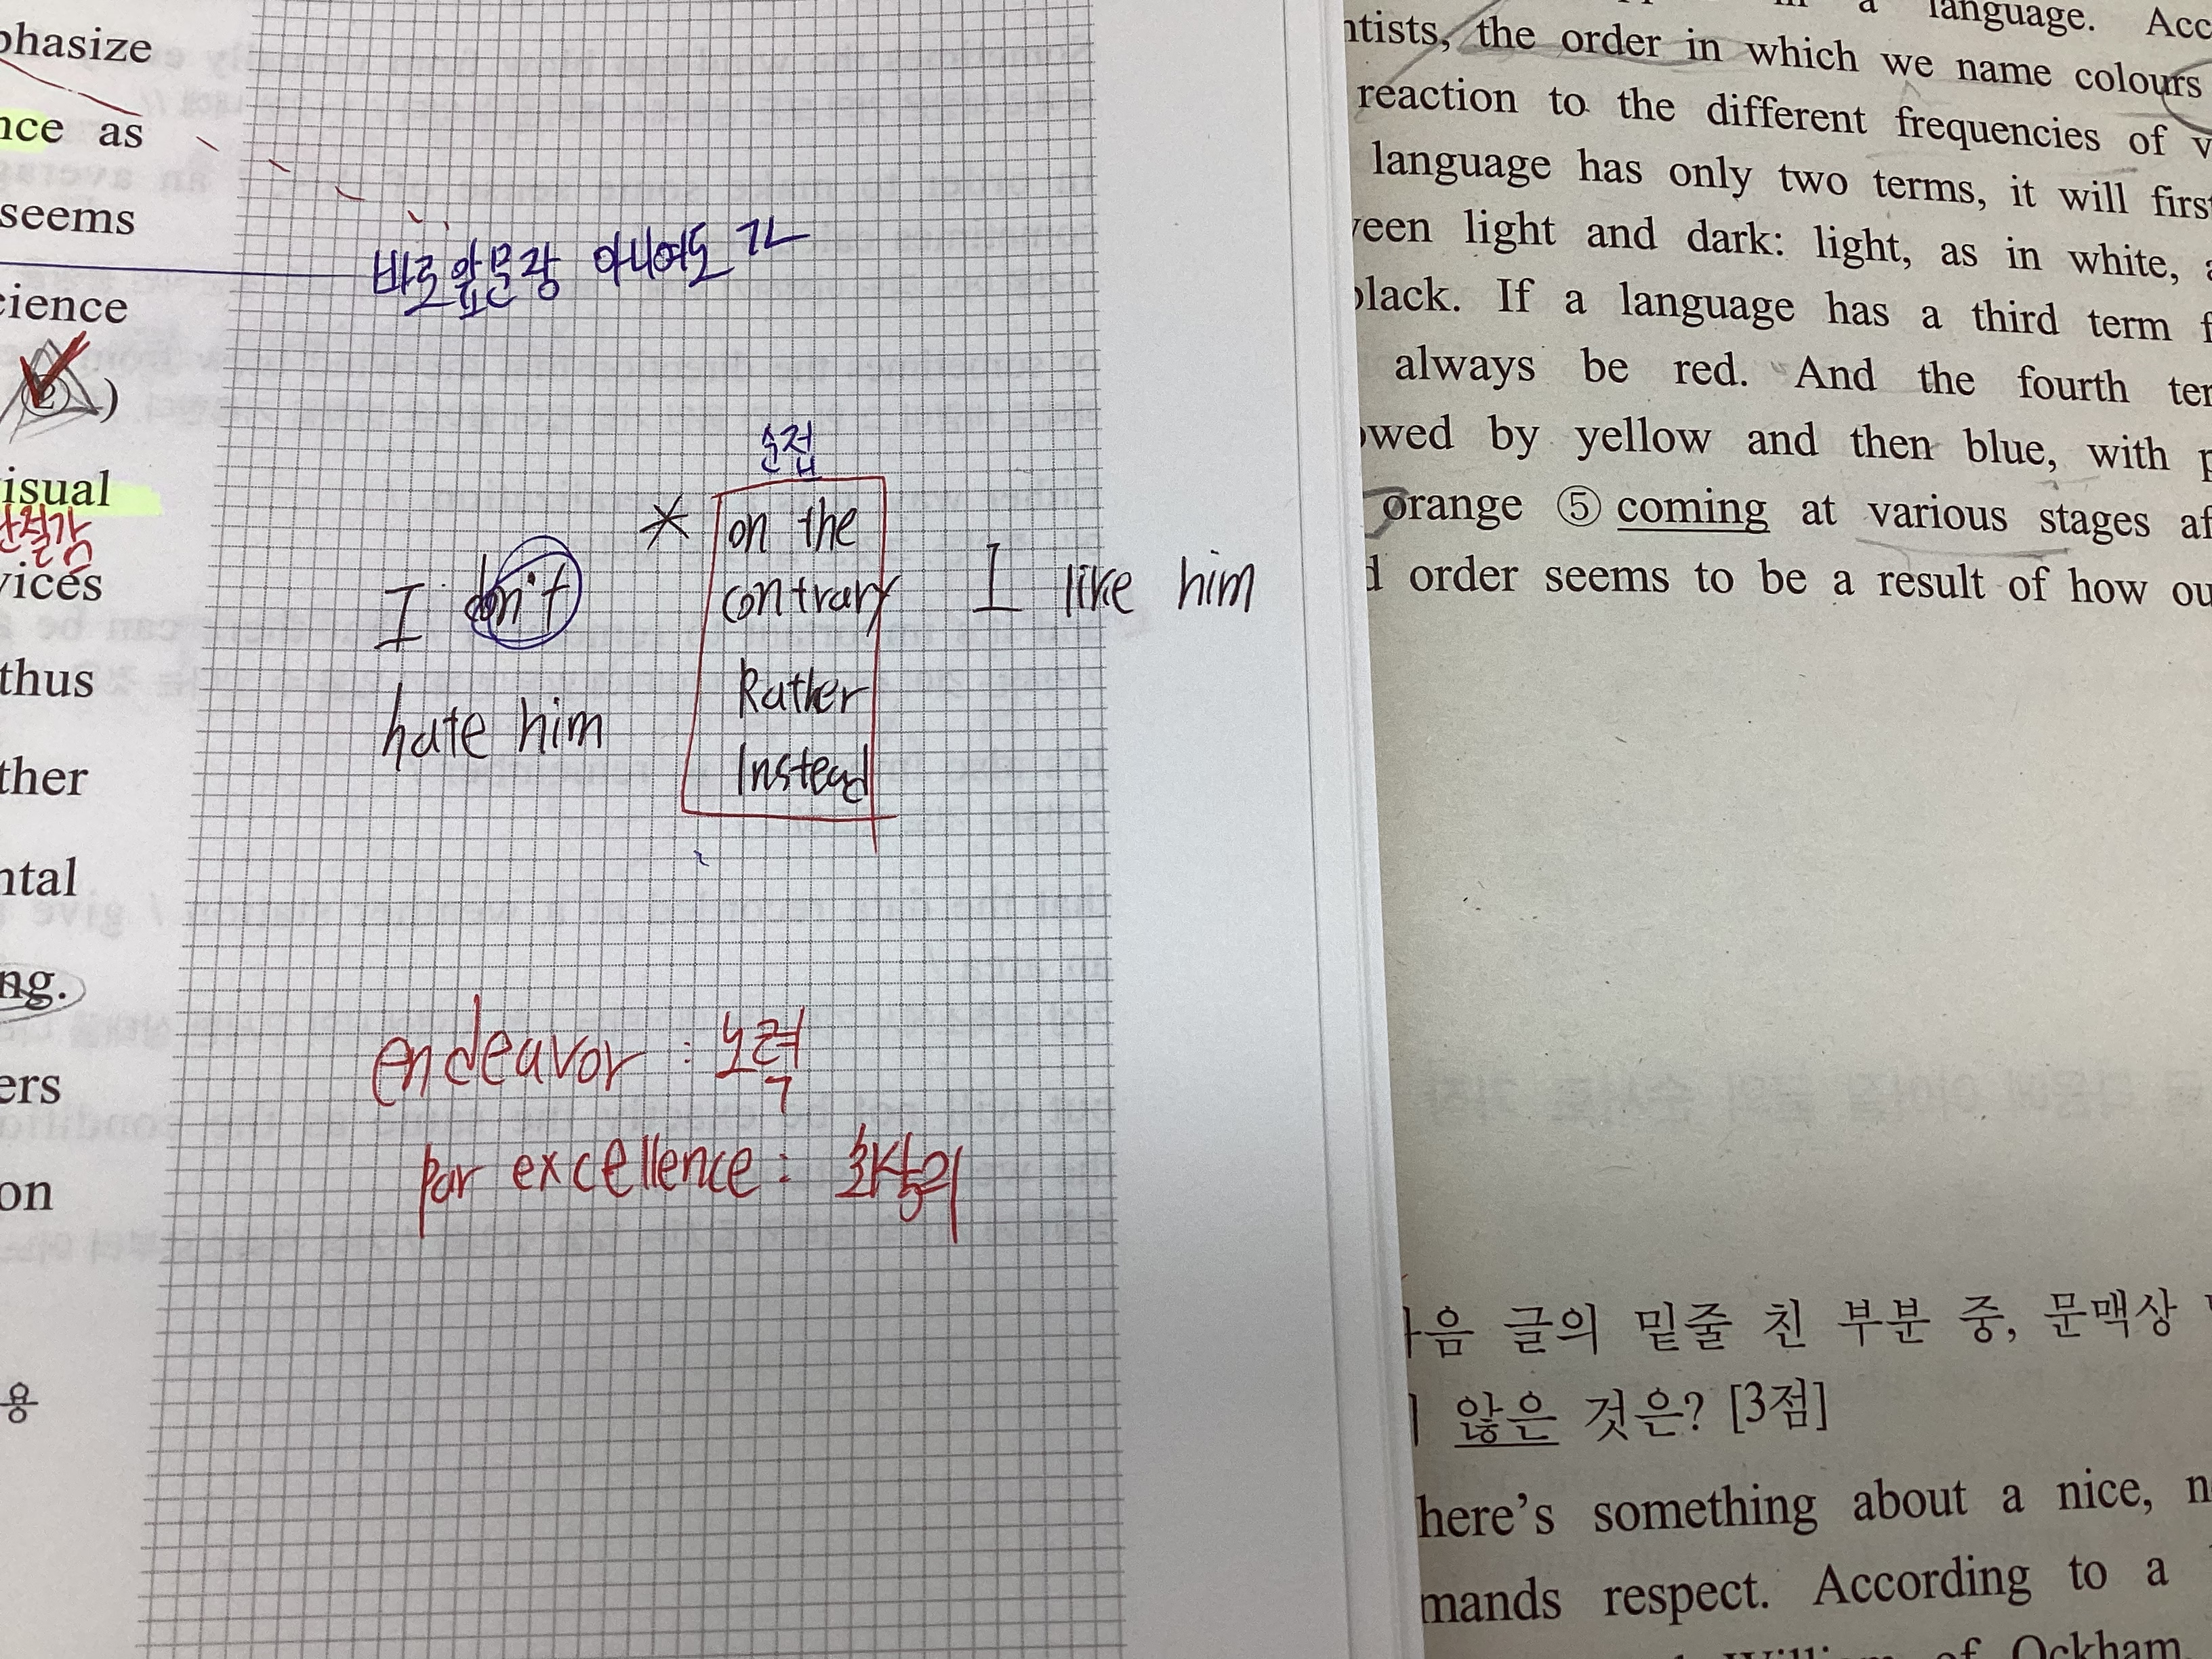 phasize
nce as
seems
cience
②)
isual
단절감
vices
thus
ther
ntal
ng.
ers
on
용
바로앞문장 아니어도 가
순접
* on the
contrary
Rather
Instead
I don't
hate him
I like him
endeavor : 노력
par excellence : 최상의
a language. Acc
ntists, the order in which we name colours
reaction to the different frequencies of v
language has only two terms, it will first
veen light and dark: light, as in white, a
black. If a language has a third term f
always be red. And the fourth ter
owed by yellow and then blue, with p
orange ⑤ coming at various stages af
d order seems to be a result of how ou
다음 글의 밑줄 친 부분 중, 문맥상
않은 것은? [3점]
here's something about a nice, n
mands respect. According to a
William of Ockham